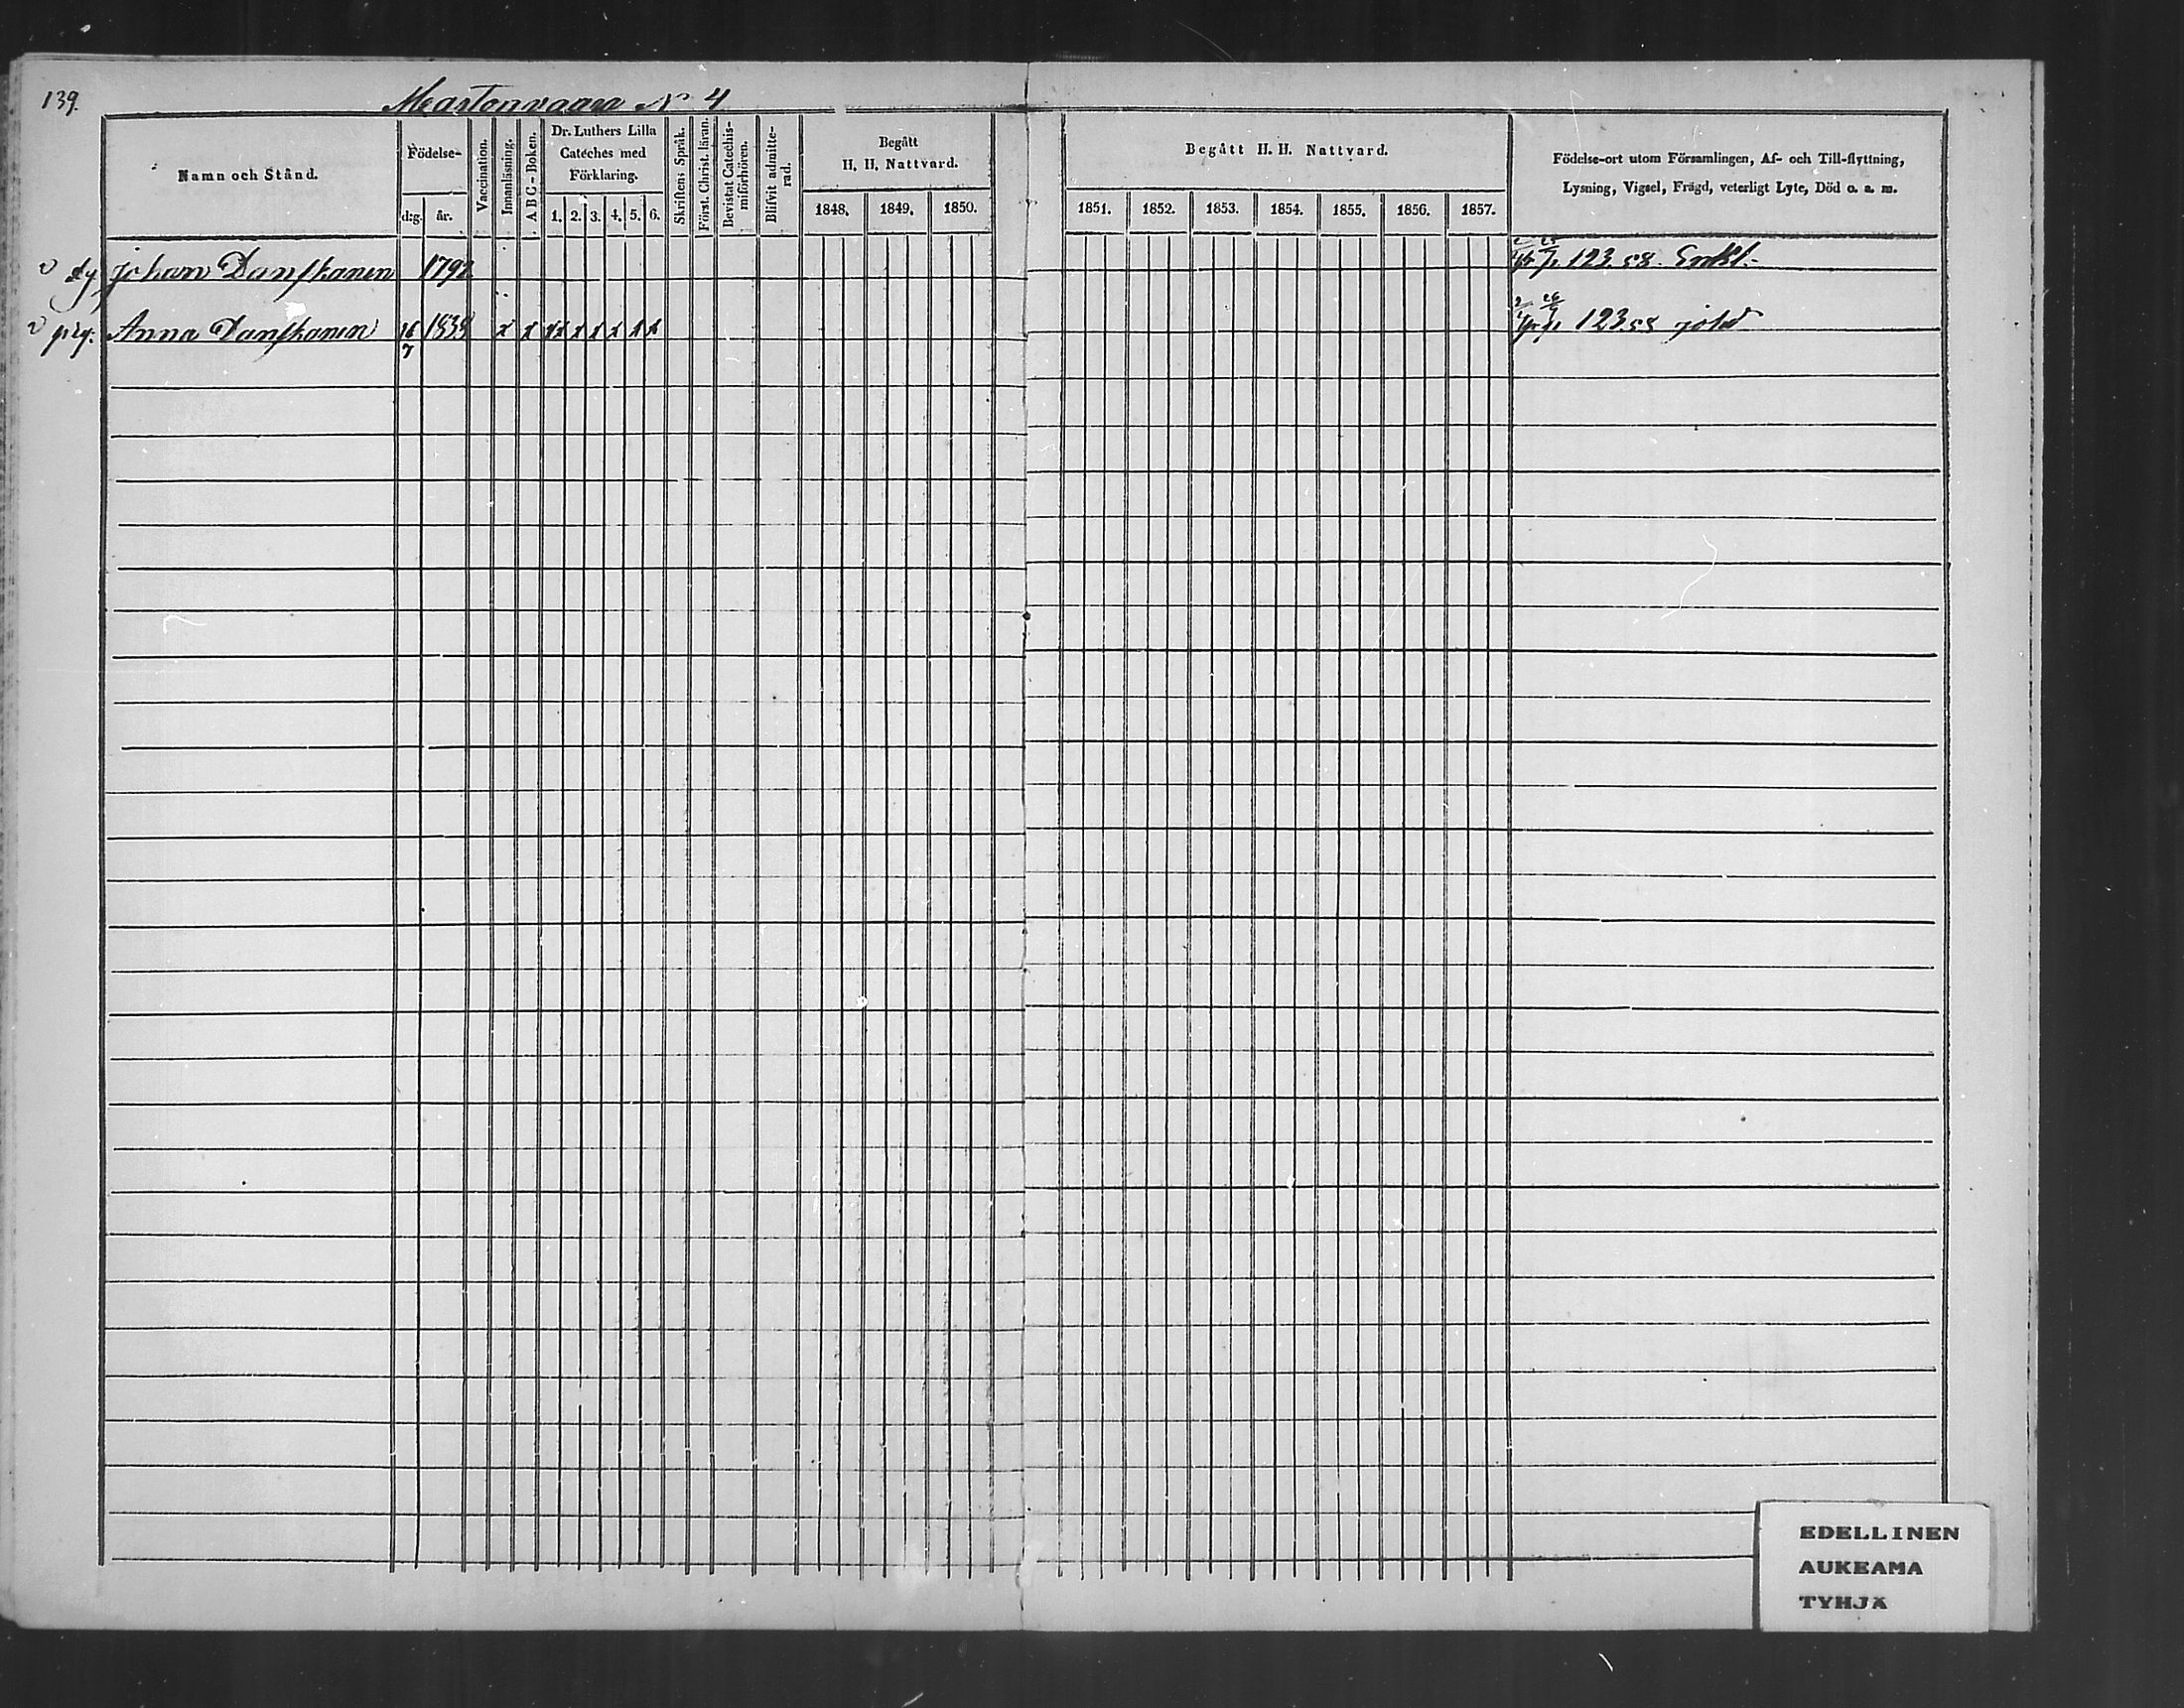 139.
Mastonvaara N° 4
Namn och Stånd.
Födelse-
d:g. år.
Vaccination.
Innanläsning.
A B C - Boken.
Dr. Luthers Lilla
Cateches med
Förklaring.
1. 2. 3. 4. 5. 6.
Skriftens Språk.
Först. Christ. läran.
Bevistat Catechis-
miförhören.
Blifvit admitte-
rad.
Begått
H. H. Nattvard.
1848. 1849. 1850.
Begått H. H. Nattvard.
1851. 1852. 1853. 1854. 1855. 1856. 1857.
Födelse-ort utom Församlingen, Af- och Till-flyttning,
Lysning, Vigsel, Frägd, veterligt Lyte, Död o. a. m.
Johan Danskanen 1792 123.58. Enkl.
Anna Danskanen 16/7 1838 x x x x x x x x x 123.58
EDELLINEN
AUKEAMA
TYHJÄ